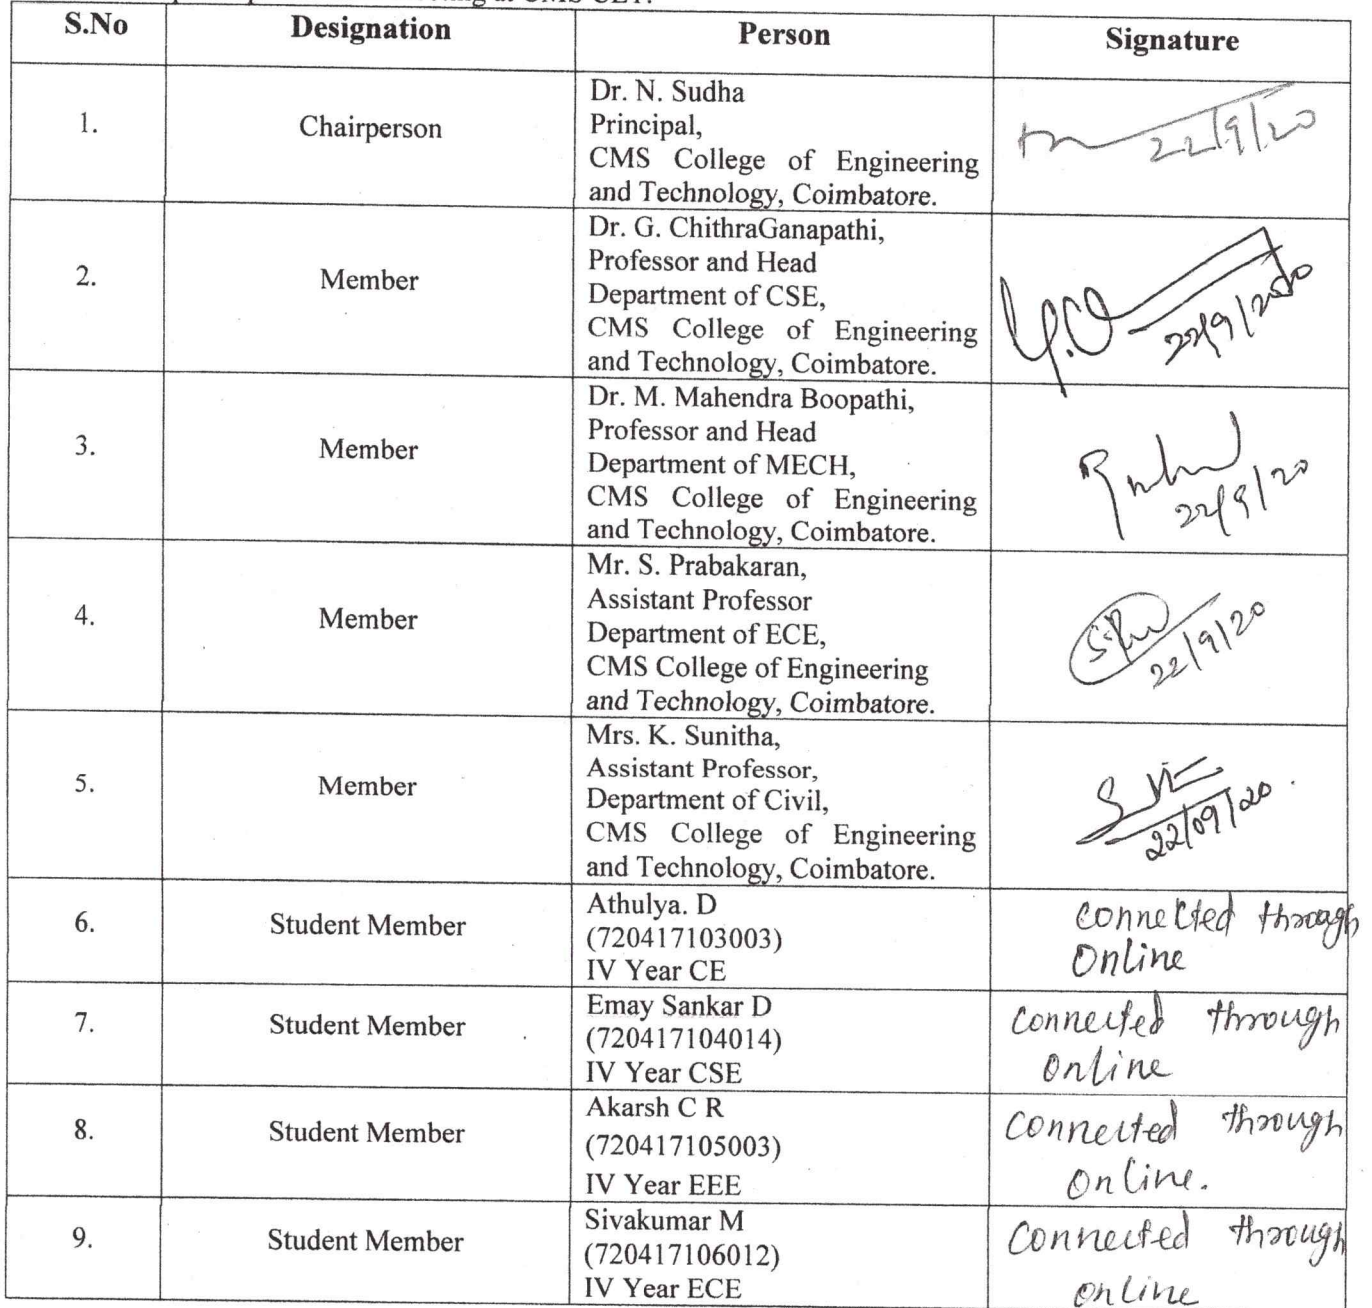 S.No Designation Person Signature
1. Chairperson
Dr. N. Sudha
Principal,
CMS College of Engineering
and Technology, Coimbatore.
22/9/20
2. Member
Dr. G. ChithraGanapathi,
Professor and Head
Department of CSE,
CMS College of Engineering
and Technology, Coimbatore.
22/9/2020
3. Member
Dr. M. Mahendra Boopathi,
Professor and Head
Department of MECH,
CMS College of Engineering
and Technology, Coimbatore.
22/9/20
4. Member
Mr. S. Prabakaran,
Assistant Professor
Department of ECE,
CMS College of Engineering
and Technology, Coimbatore.
22/9/20
5. Member
Mrs. K. Sunitha,
Assistant Professor,
Department of Civil,
CMS College of Engineering
and Technology, Coimbatore.
22/09/20.
6. Student Member
Athulya. D
(720417103003)
IV Year CE
Connected through
Online
7. Student Member
Emay Sankar D
(720417104014)
IV Year CSE
Connected through
Online
8. Student Member
Akarsh C R
(720417105003)
IV Year EEE
Connected through
Online.
9. Student Member
Sivakumar M
(720417106012)
IV Year ECE
Connected through
online